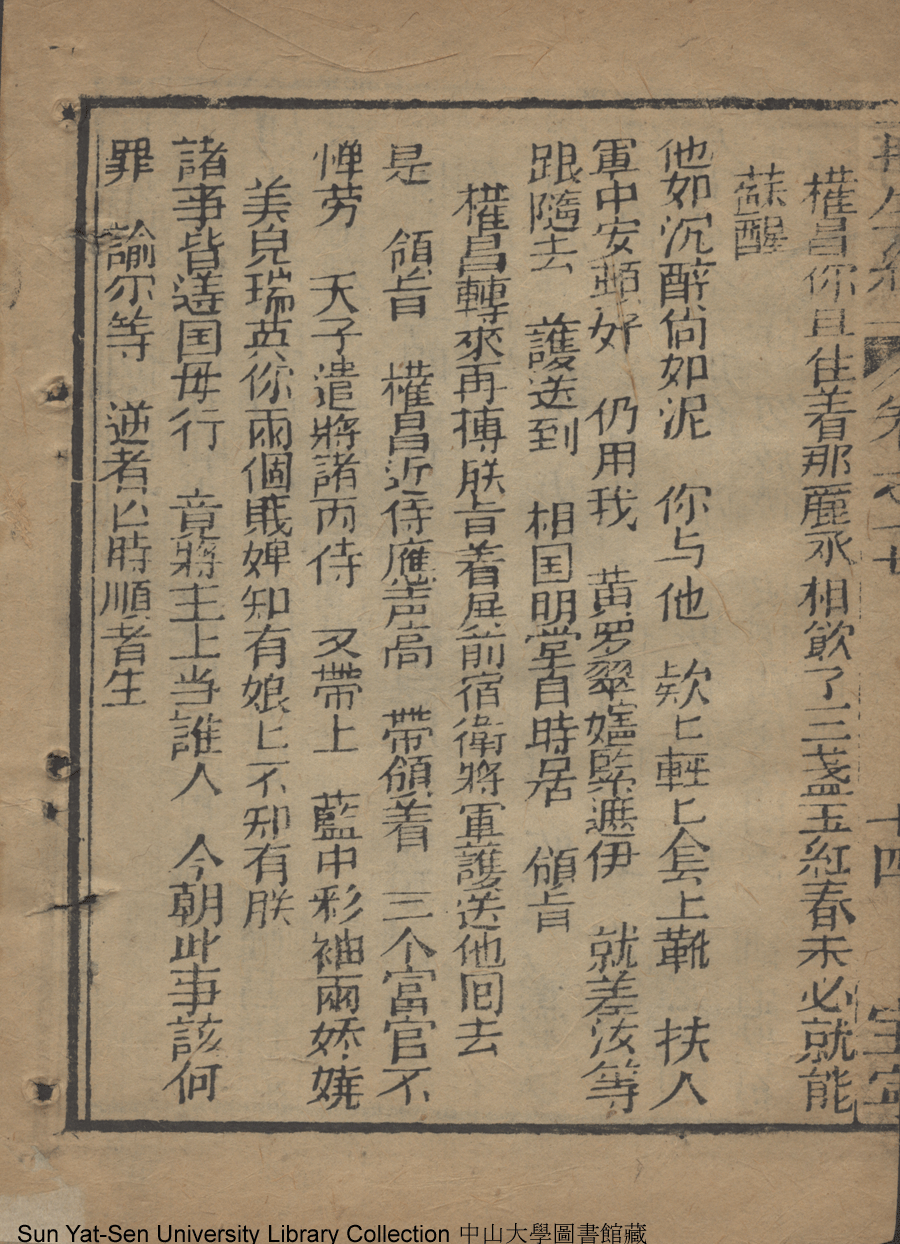 再生緣 卷之十七 十四
權昌你且住着那麗丞相飲了三盞玉紅春未必就能
蘇醒
他如沉醉尙如泥 你与他 欵匕輕匕套上靴 扶人
軍中安頓好 仍用我 黄罗翠嫗緊遮伊 就差汝等
跟隨去 護送到 相国明堂自時居 領旨
權昌轉來再傳朕旨着展前宿衛將軍護送他囘去
是 領旨 權昌近侍應声高 带領着 三个富官不
惮劳 天子遣將諸丙侍 又帶上 藍中彩袖兩娇嬈
美皃瑞英你兩個賎婢知有娘匕不知有朕
諸事皆遵国毋行 竟將主上当誰人 今朝此事該何
罪 諭尔等 逆者匕時順者生
Sun Yat-Sen University Library Collection 中山大學圖書館藏